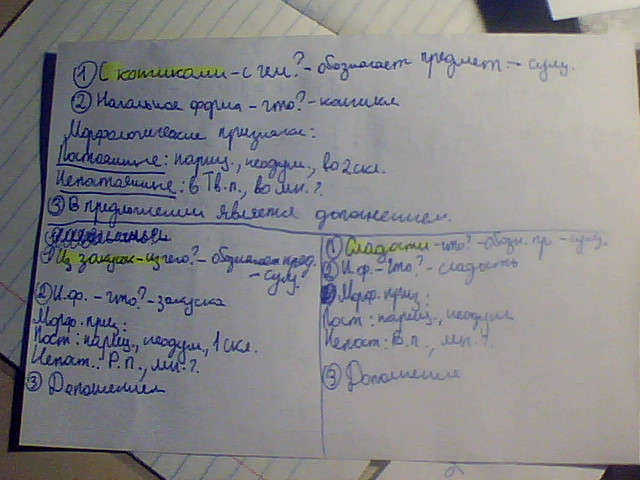 ① С котиками - с чем? - обозначает предмет - сущ.
② Начальная форма - что? - котики
Морфологические признаки:
Постоянные: нариц., неодуш., во 2 скл.
Непостоянные: в Тв.п., во мн.ч.
③ В предложении является дополнением.
① Из закусок - из чего? - обозначает пред.
- сущ.
② Н.ф. - что? - закуска
Морф. приз:
Пост: нариц., неодуш., 1 скл.
Непост.: Р.П., мн.ч.
③ Дополнением
① Сладости - что? - обозн. пр - сущ.
② Н.ф. - что? - сладость
Морф. приз:
Пост: нариц., неодуш
Непост: В.п., мн.ч.
③ Дополнение